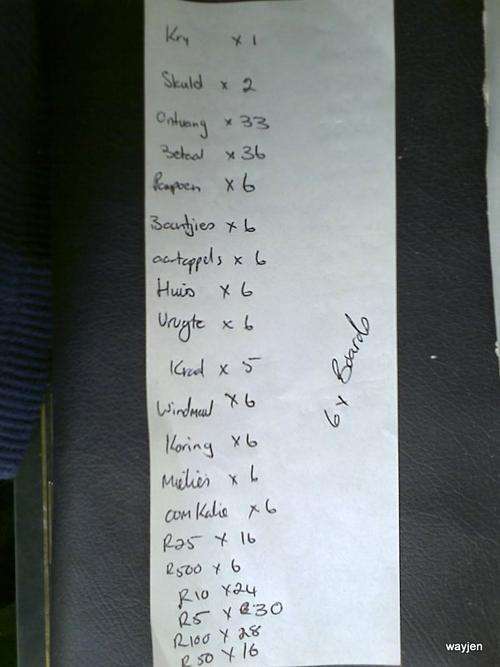 Kry x 1
Skuld x 2
Ontvang x 33
Betaal x 36
Pampoen x 6
Boontjies x 6
aartappels x 6
Huis x 6
Vrugte x 6
x 5
Windmeul x 6
Koring x 6
Mielies x 6
x 6
R25 x 16
R500 x 6
R10 x 24
R5 x 30
R100 x 28
R50 x 16
6 x Boards
wayjen